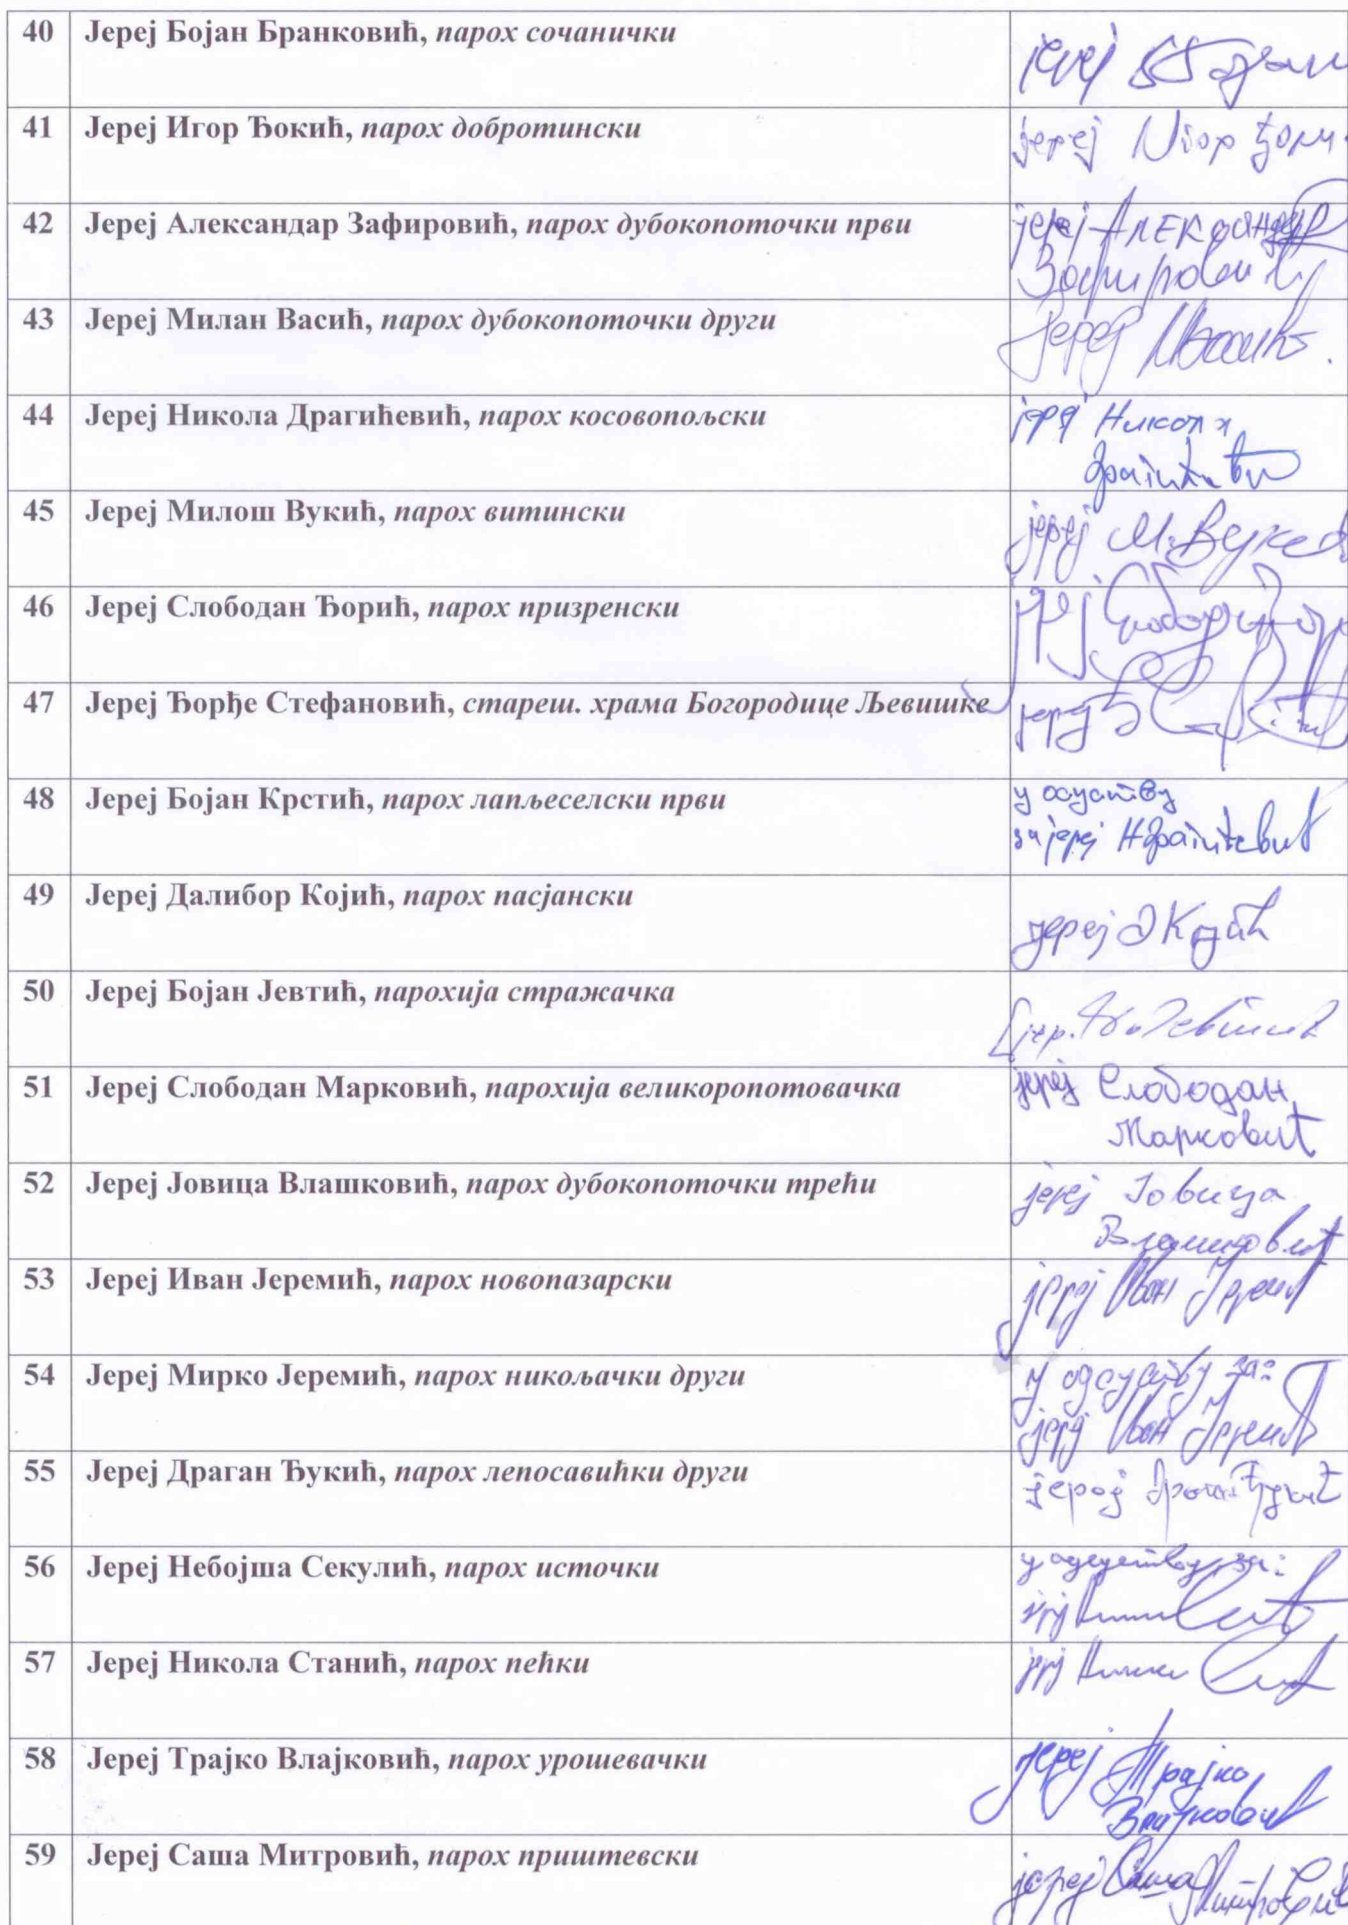 40 Јереј Бојан Бранковић, парох сочанички
јереј
41 Јереј Игор Ђокић, парох добротински
јереј Игор
42 Јереј Александар Зафировић, парох дубокопоточки први
јереј Александар
Зафировић
43 Јереј Милан Васић, парох дубокопоточки други
Јереј
44 Јереј Никола Драгићевић, парох косовопољски
јереј Никола
45 Јереј Милош Вукић, парох витински
јереј М. Вукић
46 Јереј Слободан Ђорић, парох призренски
јереј Слободан
47 Јереј Ђорђе Стефановић, стареш. храма Богородице Љевишке
јереј Ђ
48 Јереј Бојан Крстић, парох лапљеселски први
у одсуству
за јереј Н Драгићевић
49 Јереј Далибор Којић, парох пасјански
јереј Д Којић
50 Јереј Бојан Јевтић, парохија стражачка
јер. Б. Јевтић
51 Јереј Слободан Марковић, парохија великоропотовачка
јереј Слободан
Марковић
52 Јереј Јовица Влашковић, парох дубокопоточки трећи
јереј Јовица
Влашковић
53 Јереј Иван Јеремић, парох новопазарски
јереј Иван Јеремић
54 Јереј Мирко Јеремић, парох никољачки други
у одсуству за:
јереј Иван Јеремић
55 Јереј Драган Ђукић, парох лепосавићки други
јереј Драган Ђукић
56 Јереј Небојша Секулић, парох источки
у одсуству за:
јереј
57 Јереј Никола Станић, парох пећки
јереј Никола
58 Јереј Трајко Влајковић, парох урошевачки
јереј Трајко
Влајковић
59 Јереј Саша Митровић, парох приштевски
јереј Саша Митровић